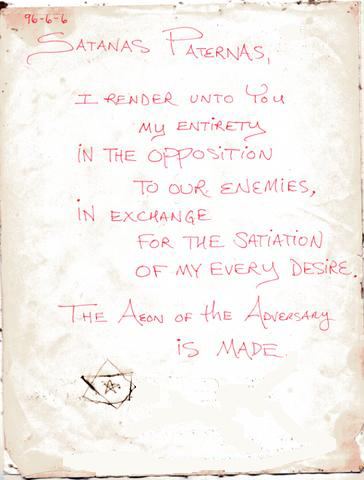 96-6-6
SATANAS PATERNAS,
I RENDER UNTO YOU
MY ENTIRETY
IN THE OPPOSITION
TO OUR ENEMIES,
IN EXCHANGE
FOR THE SATIATION
OF MY EVERY DESIRE.
THE AEON OF the ADVERSARY
IS MADE.